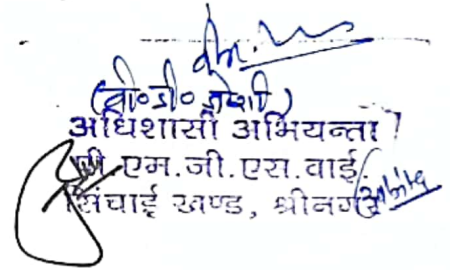 (बी०डी० जोशी)
अधिशासी अभियन्ता
पी.एम.जी.एस.वाई.
सिंचाई खण्ड, श्रीनगर